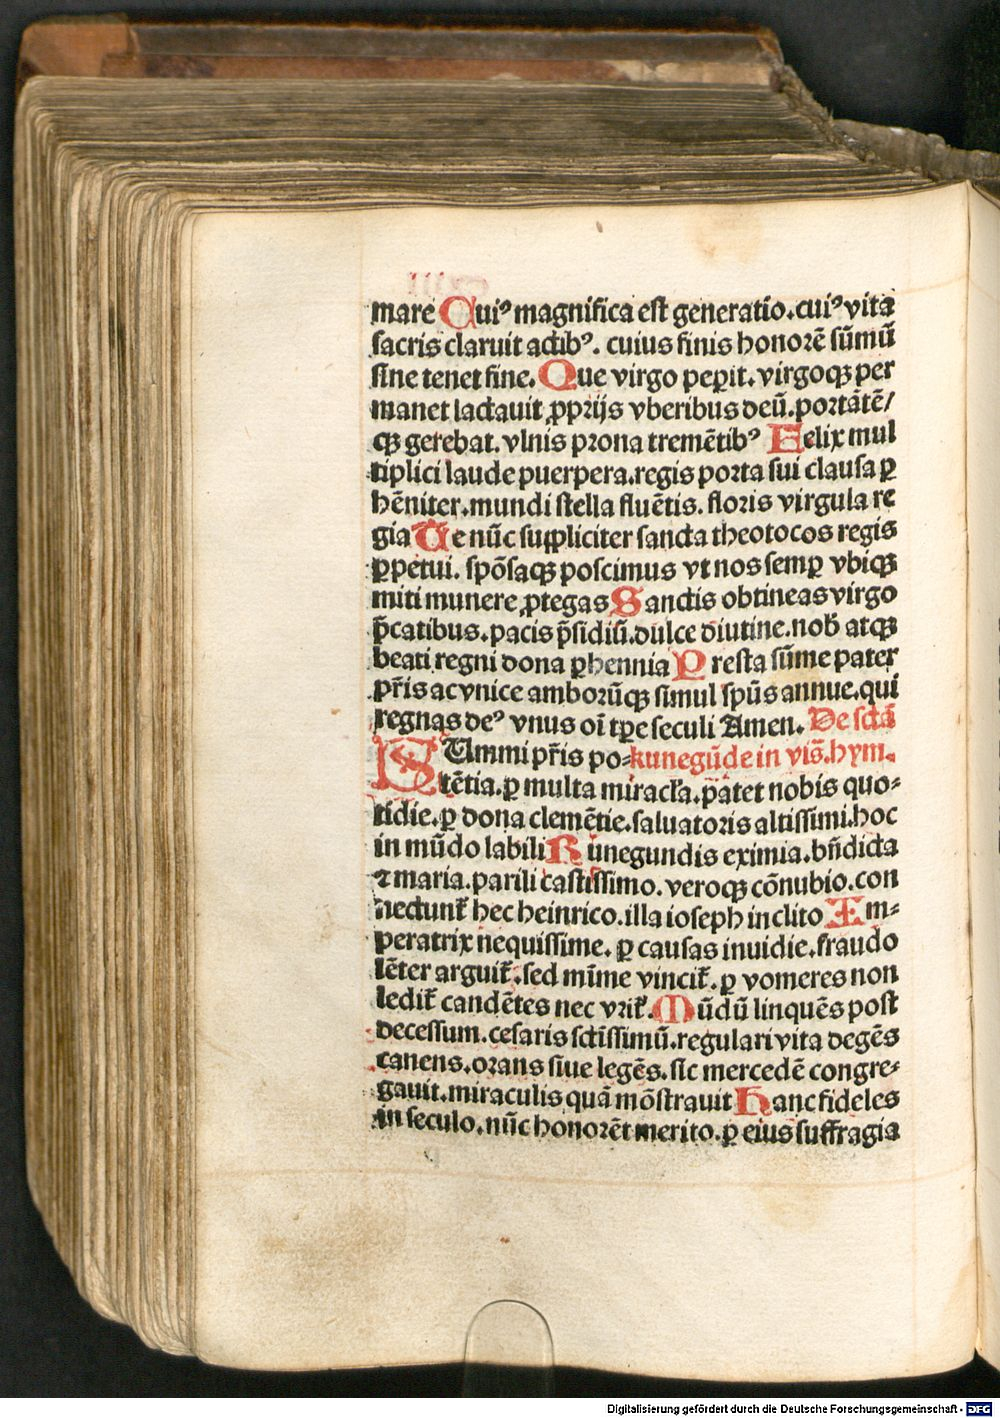 mare Cuiꝰ magnifica est generatio.cuiꝰ vita
sacris claruit actibꝰ. cuius finis honorē sūmū
sine tenet fine. Que virgo peꝑit.virgoqꝫ per
manet lactauit ꝓprijs vberibus deū.portātē/
qꝫ gerebat.vlnis prona tremētibꝰ Felix mul
tiplici laude puerpera.regis porta sui clausa ꝑ
hēniter.mundi stella fluētis. floris virgula re
gia Te nūc suppliciter sancta theotocos regis
ꝑpetui. spōsaqꝫ poscimus vt nos semꝑ vbiqꝫ
miti munere ꝓtegas Sanctis obtineas virgo
p̄catibus.pacis p̄sidiū.dulce diutine.nob̄ atqꝫ
beati regni dona ꝑhennia Presta sūme pater
pr̄is ac vnice amborūqꝫ simul spūs annue.qui
regnas deꝰ vnus oī tꝑe seculi Amen. De sctā
SUmmi pr̄is po= kunegūde in vis̄.hym.
tētia.ꝑ multa miracl'a.patet nobis quo=
tidie.ꝑ dona clemētie.saluatoris altissimi.hoc
in mūdo labili Kunegundis eximia.bn̄dicta
⁊ maria.parili castissimo.veroqꝫ cōnubio.con
nectunt̄ hec heinrico.illa ioseph inclito Im=
peratrix nequissime.ꝑ causas inuidie.fraudo
lēter arguit̄.sed mīme vincit̄.ꝑ vomeres non
ledit̄ candētes nec vrit̄.Mūdū linquēs post
decessum.cesaris sctīssimū.regulari vita degēs
canens.orans siue legēs.sic mercedē congre=
gauit.miraculis quā mōstrauit Hanc fideles
in seculo.nūc honorēt merito.ꝑ eius suffragia
Digitalisierung gefördert durch die Deutsche Forschungsgemeinschaft - DFG